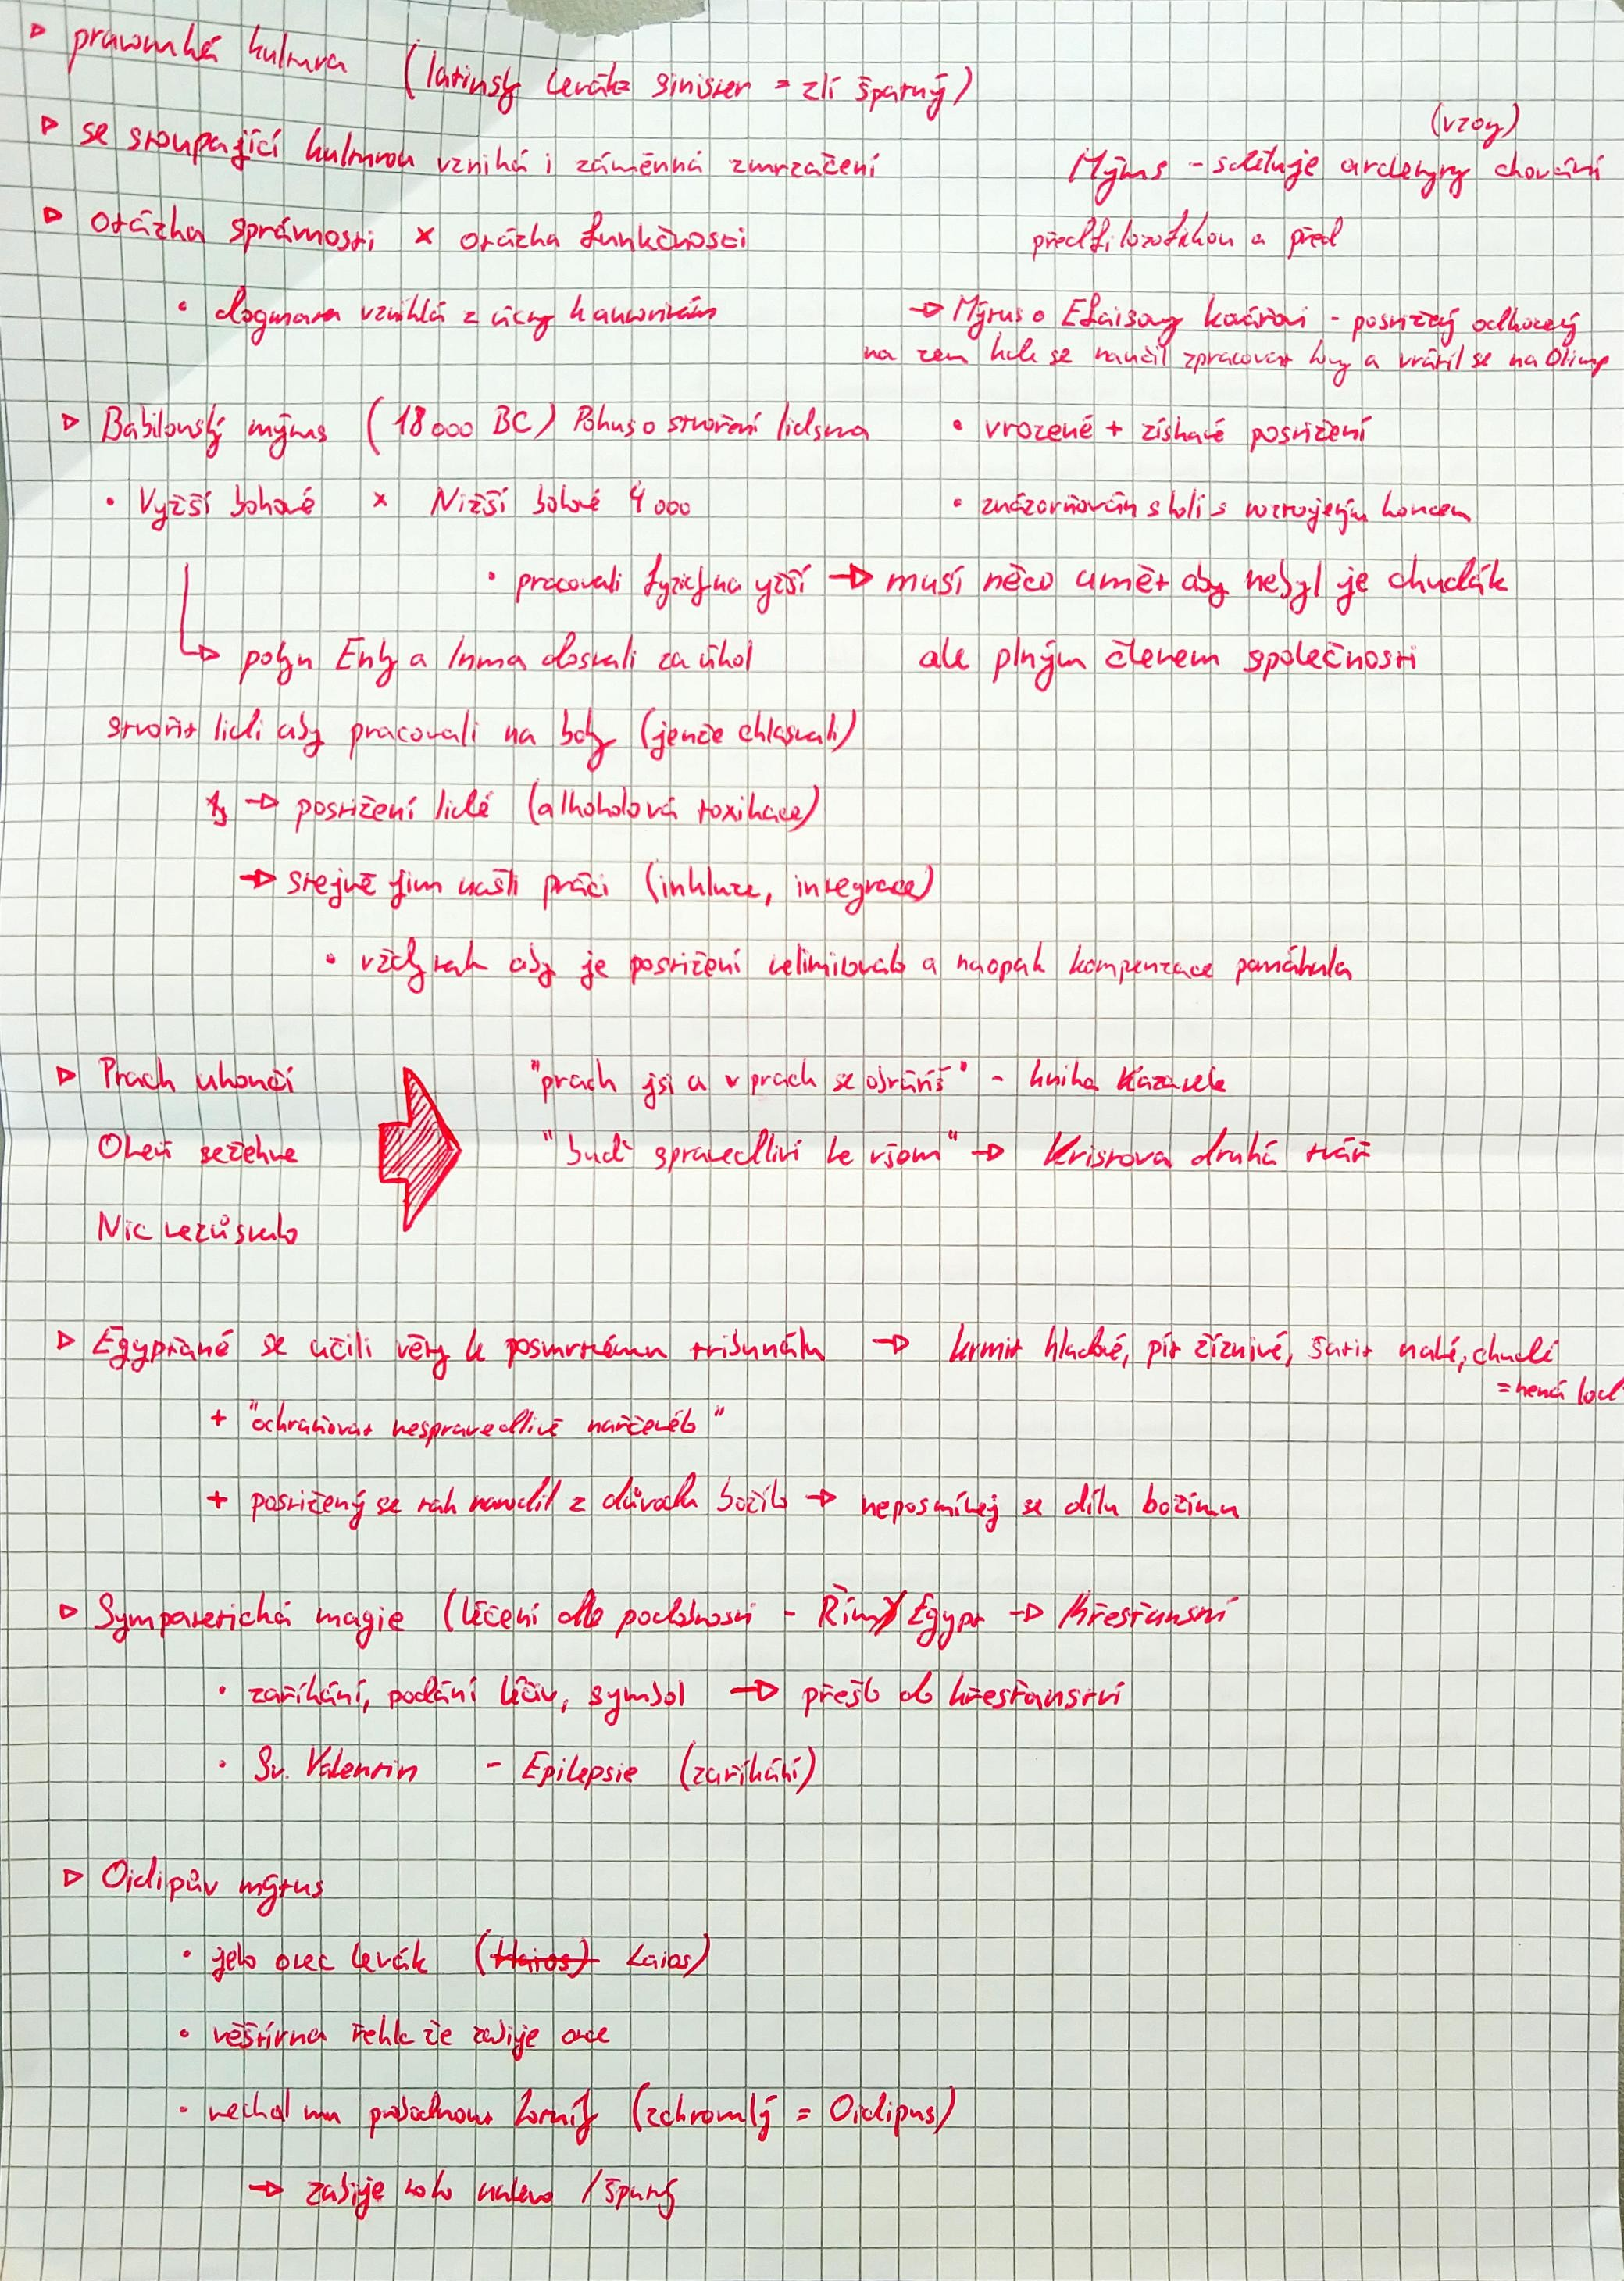 ▷ pravoruká kultura (latinsky levák = sinister = zlí špatný)
▷ se stoupající kulturou vzniká i záměnná zmrzačení
(vzory)
Mýtus - sděluje archetypy chování
předfilozofickou a před
▷ otázka správnosti × otázka funkčnosti
• dogmata vzniklá z úcty k autoritám
→ Mýtus o Efaistovy kováři - postižený odhozený
na zem kde se naučil zpracovat kovy a vrátil se na Olimp
• vrozené + získané postižení
• znázorňován s holí s rozdvojeným koncem
→ musí něco umět aby nebyl je chudák
ale plným členem společnosti
▷ Babilonský mýtus (18 000 BC) Pokus o stvoření lidstva
• Vyžší bohové × Nižší bohové 4 000
• pracovali fyzicky na vyžší
→ Enky a Inma dostali za úkol
stvořit lidi aby pracovali na bohy (jenže chlastali)
→ postižení lidé (alkoholová toxikace)
→ stejně jim našli práci (inkluze, integrace)
• vždy tak aby je postižení nelimitovalo a naopak kompenzace pomáhala
▷ Prach ukončí
Oheň sežehne
Nic nezůstalo
"prach jsi a v prach se obrátíš" - kniha Kazatele
"buď spravedliví ke všem" → Kristova druhá tvář
▷ Egypťané se učili věty k posmrtnému tribunálu → krmit hladové, pít žíznivé, šatit nahé, chudí
= nemá loď
+ "ochraňovat nespravedlivě nařčeného"
+ postižený se tak narodil z důvodu božího → neposmívej se dílu božímu
▷ Sympatetická magie (léčení dle podobnosti - Řím/Egypt → Křesťanství
• zaříkání, podání léčiv, symbol → přešlo do křesťanství
• Sv. Valentin - Epilepsie (zaříkání)
▷ Oidipův mýtus
• jeho otec levák (Laios)
• věštírna řekla že zabije otce
• nechal mu probodnout kotníky (zchromlý = Oidipus)
→ zabije toho nalevo / špatný